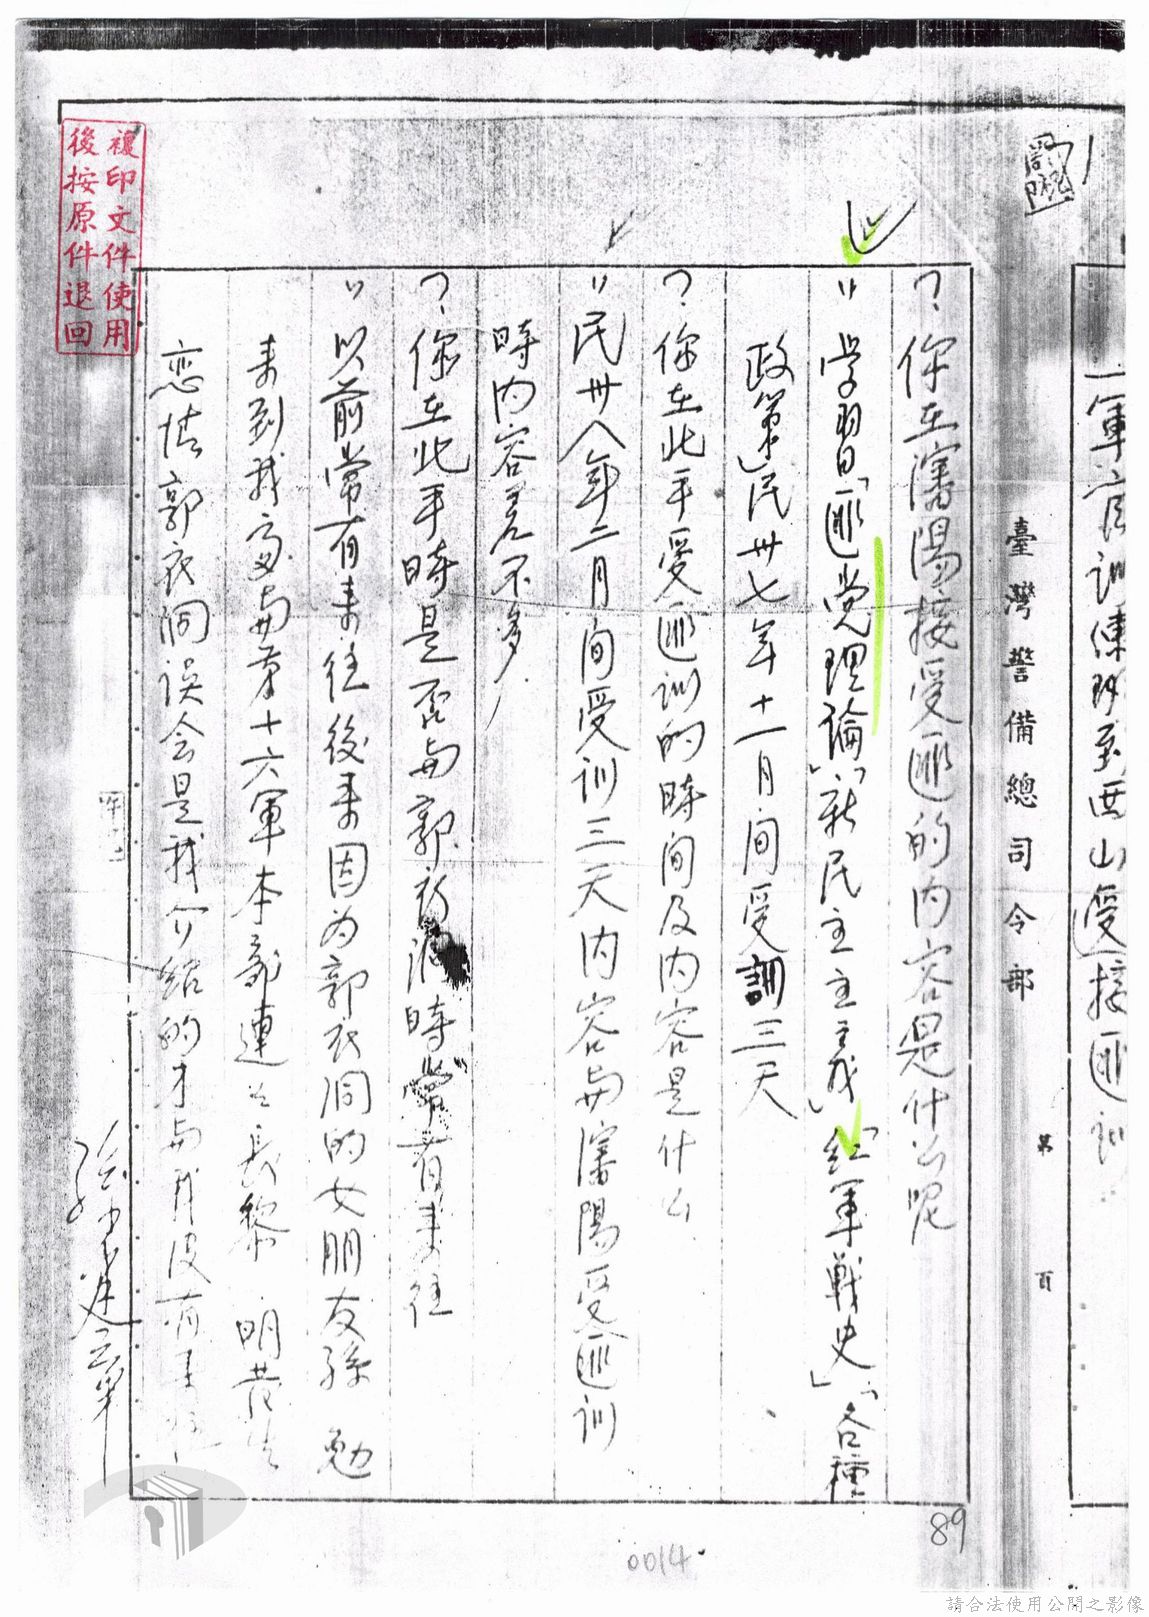 軍官訓練班到西山受接匪訓
臺灣警備總司令部
第 頁
？你在瀋陽接受匪的内容是什么呢
〃学習「匪党理論」「新民主主義」「紅軍戰史」「各種
政策」民卅七年十一月间受訓三天
？你在北平受匪訓的時间及内容是什么
〃民卅八年二月间受训三天内容与瀋陽受匪训
時内容差不多
？你在北平時是否与郭衣洞時常有来往
〃以前常有来往後来因为郭衣洞的女朋友孫勉
来到我家与第十六軍本部連連長黎明發生
恋情郭衣洞误会是我介绍的才与我没有来往
孫建章
複印文件使用
後按原件退回
89
0014
請合法使用公開之影像